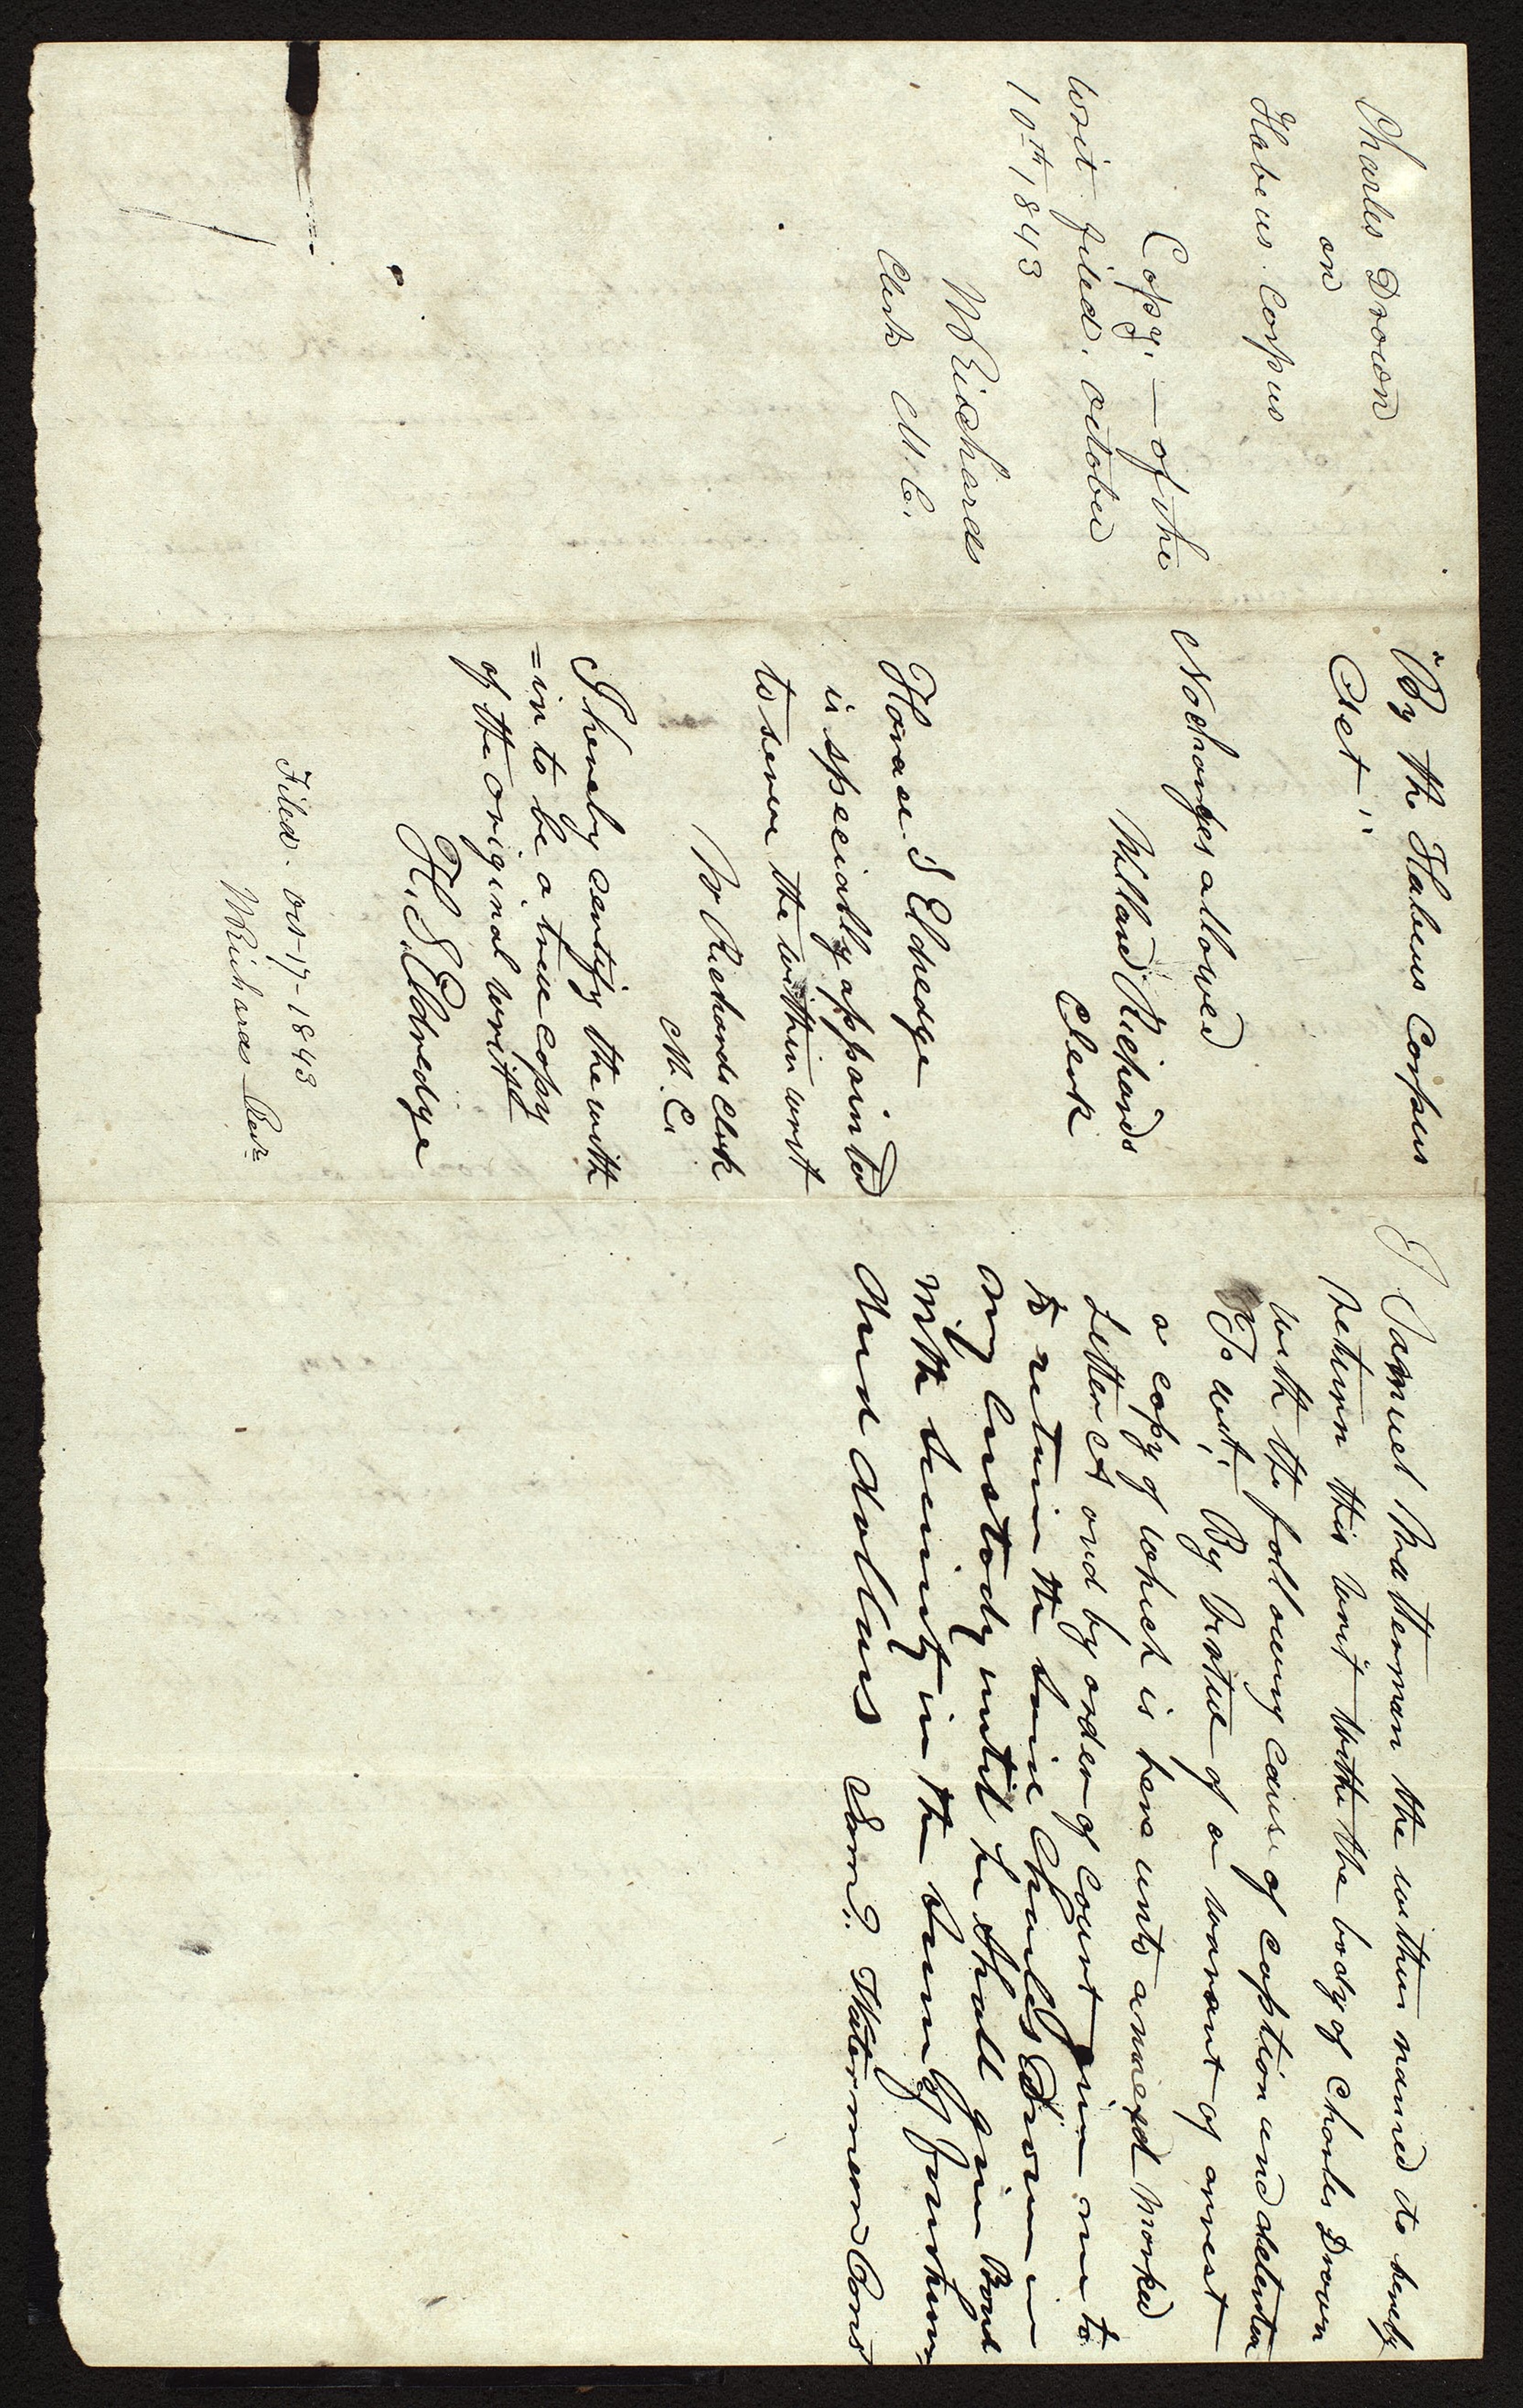 Charles Drown
on
Habeus Corpus
Copy. — of the
writ filed. october
10th 1843
W Richards
Clerk M. C.
"By the Habeus Corpus
Act"
No charges allowed
Willard Richards
Clerk
Horace S Eldredge
is specially appointed
to serve the within writ
W Richards Clerk
M. C.
I hereby certify the with
=in to be a true copy
of the original writ
H. S. Eldredge
Filed. Oct 17- 1843
W Richards
I Samuel Watterman the within named do hereby
return this writ with the body of Charles Drown
with the following cause of caption and detention
To wit. By virtue of a warant of arrest
a copy of which is here unto annexd marked
Letter A and by order of Court given me to
to retain the said Charles Drown in
my Custody until he shall give Bond
with security in the sum of four hun
dred dollars Saml. Watermean Cons